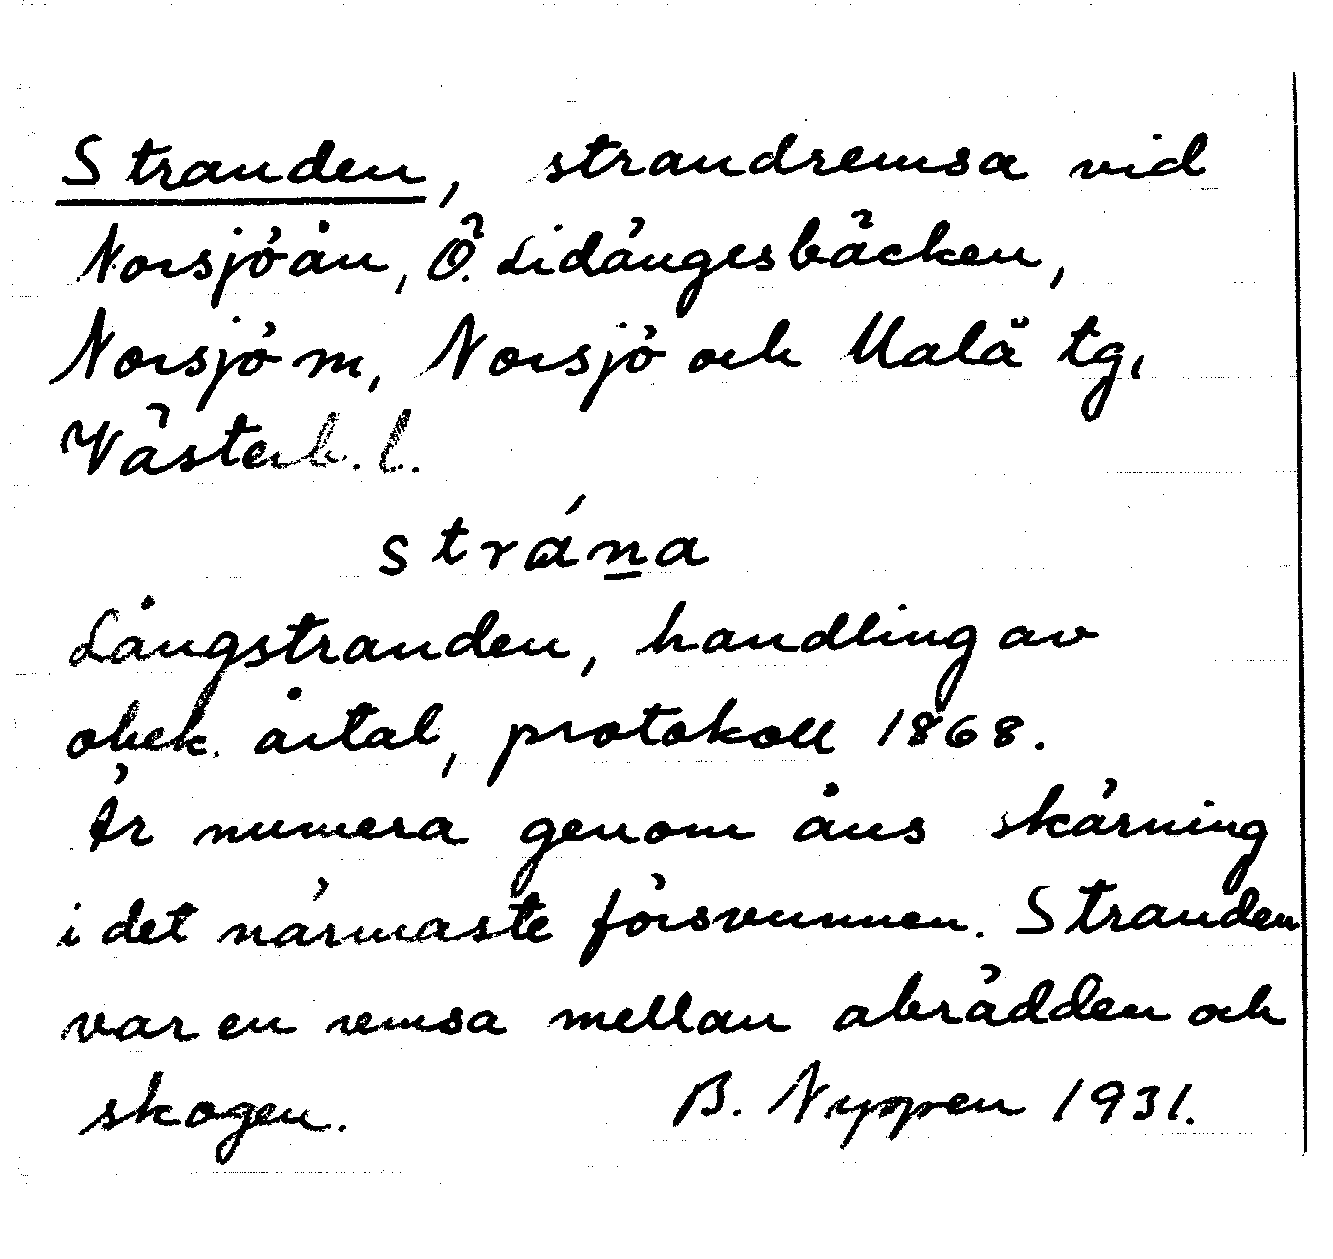 Stranden, strandremsa vid
Norsjöån, Ö. Lidängesbäcken,
Norsjö m, Norsjö och Malå tg,
Västerb. l.
strána̱
Långstranden, handling av
obek. årtal, protokoll 1868.
Är numera genom åns skärning
i det närmaste försvunnen. Stranden
var en remsa mellan åbrädden och
skogen. B. Nyppen 1931.